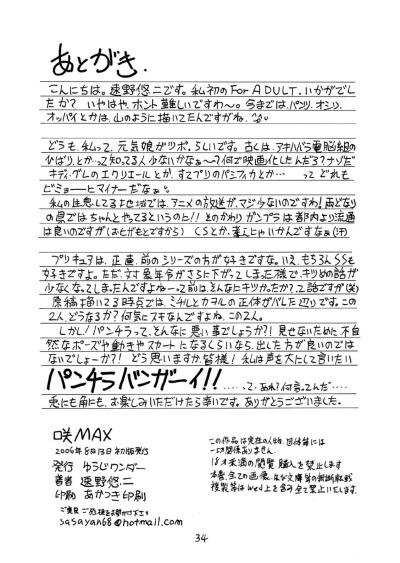 あとがき.
こんにちは。遠野悠二です。私初のFor ADULT.いかがでし
たか? いやはや、ホント難しいですわ〜。今までは、パンツ、オシリ、
オッパイとかは、山のように描いてたんですがね.
どうも、私って、元気娘がツボ。らしいです。古くは、アキハバラ電脳組の
ひばり、とか…って知ってる人少ないかなぁ〜?何で映画化したんだろ?ナゾだ
キディ・グレのエクリエールとか、すてプリのパシフィカとか… って どれも
ビミョーーヒマイナーだなぁ。
私の生息してる地域では、アニメの放送が、マジ少ないのですわ!雨どなり
の県ではちゃんとやってるというのに!! とのかわり ガンプラは都内より流通
は良いのですが(おヒザもとですから) CSとか、導入じゃいかんですなぁ(汗)
プリキュアは、正直、前のシリーズの方が好きですな。いえ、もちろんSSも
好きですよ。ただ、対象年令がさらに下がってしまった様で、キツめの話が
少なくなってしまったんですよねー。って前は、そんなにキツかったか?って話ですが(笑)
原稿描いてる時点では、ミチルとカヲルの正体がバレた辺りです。この
2人、どうなるか?何気にスキなんですよね、この2人。
しかし!パンチラって、そんなに悪い事でしょうか?! 見せないために不自
然なポーズや動きやスカートになるくらいなら、出た方が良いのでは
ないでしょーか?! どう思いますか、皆様! 私は声を大にして言いたい
パンチラバンザーイ!! ……って、あれ?何言ってんだ……
兎にも角にも、お楽しみいただけたら幸いです。ありがとうございました。
咲MAX
2006年8月13日初版発行
発行 ゆうじワンダー
著者 遠野悠二
印刷 あかつき印刷
ご意見 ご感想をお聞かせ下さい
sasayan68@hotmail.com
この作品は実在の人物、団体等には
一切関係ありません.
18才未満の閲覧、購入を禁止します
本書、全ての画像、及び文庫等の無断転載
複製等はwed上を含み全て禁止いたします.
34